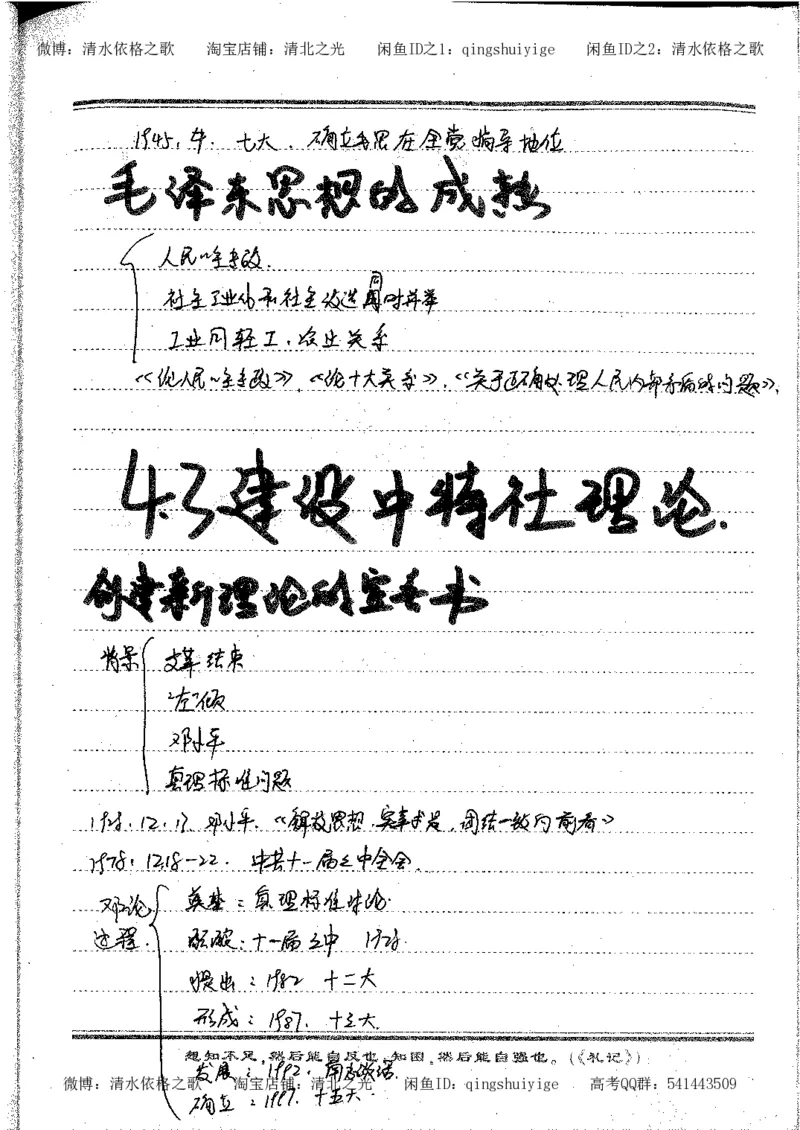 微博：清水依格之歌 淘宝店铺：清北之光 闲鱼ID之1：qingshuiyige 闲鱼ID之2：清水依格之歌
1945.4. 七大. 确立毛思在全党指导地位
毛泽东思想的成熟
人民民主专政.
社会工业化和社会改造同时并举
工业同轻工.农业关系
《论人民民主专政》.《论十大关系》.《关于正确处理人民内部矛盾的问题》.
4.3建设中特社理论.
创建新理论的宣言书
背景
文革结束
"左"倾
邓小平
真理标准问题
1978.12.13. 邓小平.《解放思想.实事求是.团结一致向前看》
1978.12.18-22. 中共十一届三中全会.
邓论过程.
奠基：真理标准讨论.
：十一届三中 1978.
提出：1982 十二大
形成：1987. 十三大.
学然后知不足，然后能自反也，知困，然后能自强也。(《礼记》)
发展：1992. 南方谈话.
微博：清水依格之歌 淘宝店铺：清北之光 闲鱼ID：qingshuiyige 高考QQ群：541443509
确立：1997. 十五大.